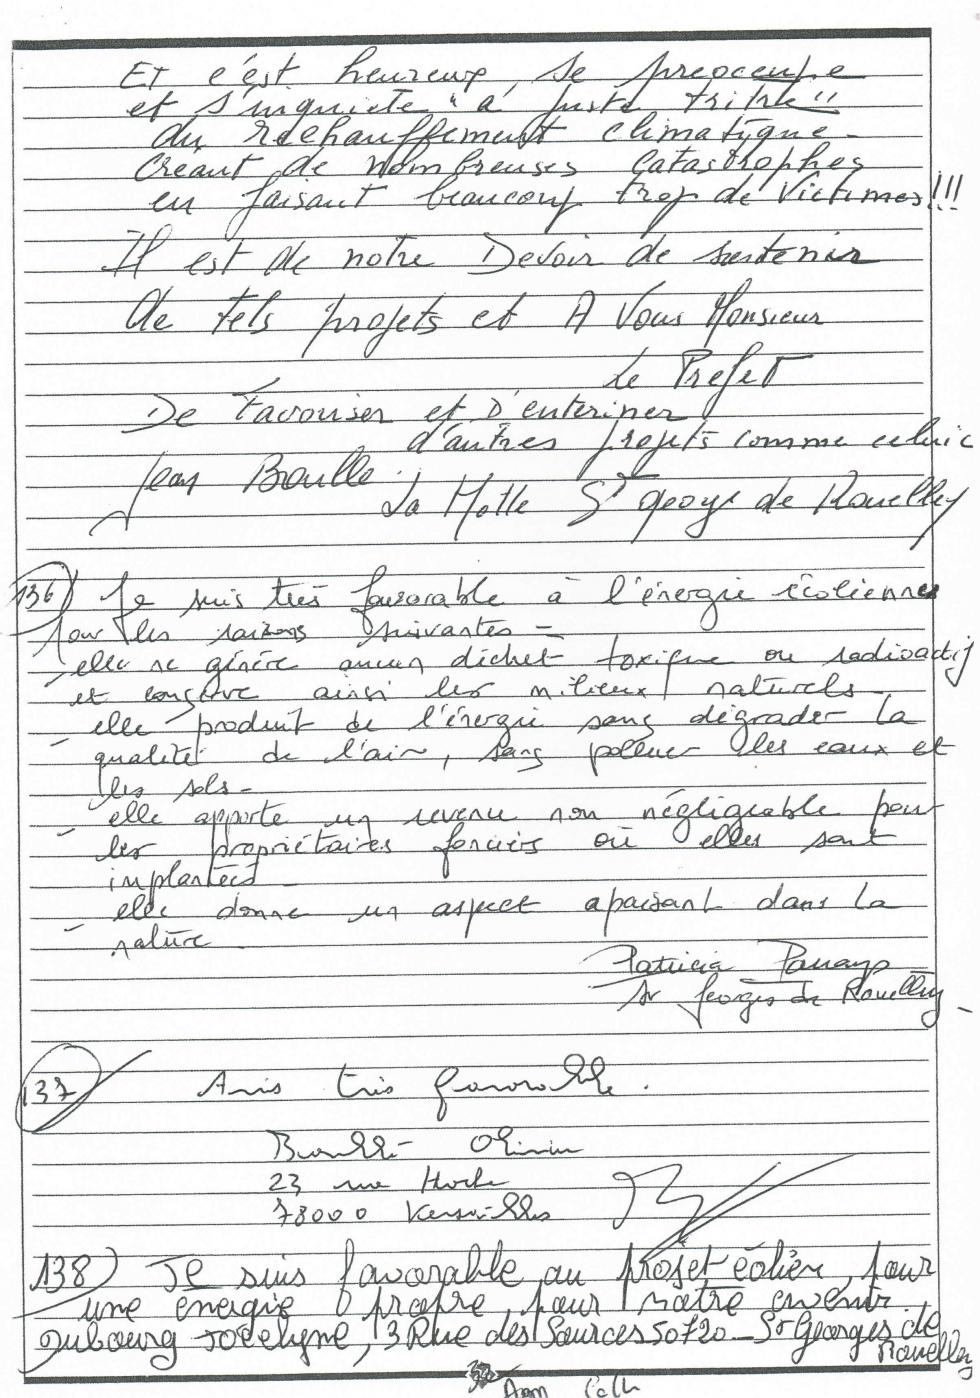 Et c'est heureux, se preoccupe
et s'inquiete "à juste tritre"
du rechauffement climatique -
Creant de nombreuses Catastrophes
en faisant beaucoup trop de Victimes!!!
Il est de notre Devoir de soutenir
de tels projets et A Vous Monsieur
Le Prefet
De Favoriser et D'enteriner
d'autres projets comme celui ci
Jean
La Motte St Georges de Rouelley
136) Je suis très favorable à l'énergie écolienne
pour les raisons suivantes -
elle ne génère aucun déchet toxique ou radioactif
et conserve ainsi les milieux naturels -
- elle produit de l'énergie sans dégrader la
qualité de l'air, sans polluer les eaux et
les sols -
- elle apporte un revenu non négligeable pour
les propriétaires fonciers où elles sont
implantées -
- elle donne un aspect apaisant dans la
nature -
Patricia
St Georges de Rouelley -
137 Avis très favorable.
23 rue Hoche
78000 Versailles
138) Je suis favorable au projet éolien, pour
une énergie propre, pour notre avenir.
Dubourg Jocelyne, 3 Rue des Sources 50720 - St Georges de
Rouelley